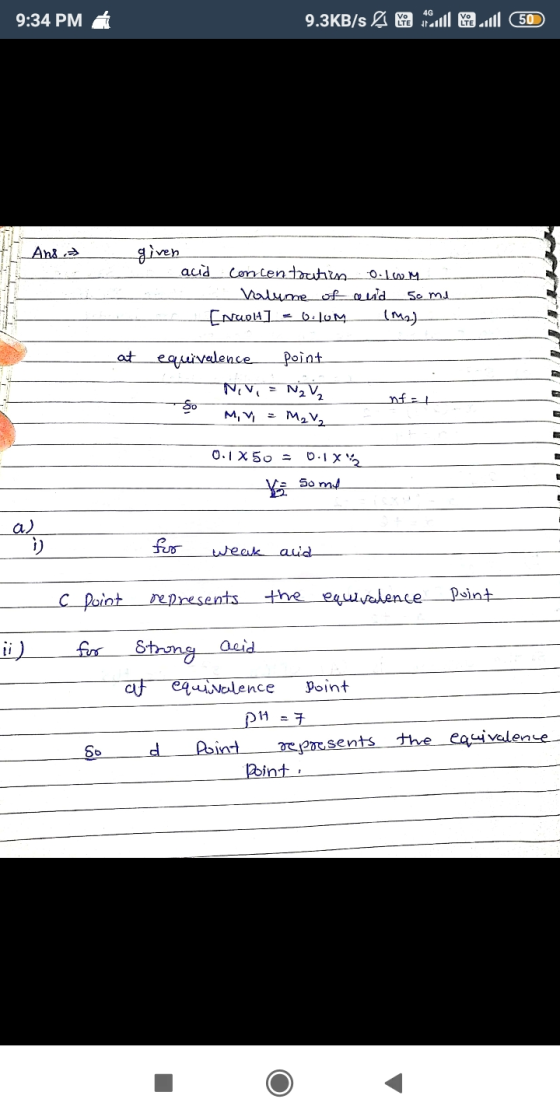 9:34 PM 9.3KB/s Vo LTE 4G Vo LTE 50
Ans. ⇒ given
acid concentration 0.100M
Volume of acid 50 ml
[NaOH] = 0.10M (M₂)
at equivalence point
N₁V₁ = N₂V₂
So nf = 1
M₁V₁ = M₂V₂
0.1 × 50 = 0.1 × V₂
V₂ = 50 ml
a)
i) for weak acid
C point represents the equivalence point
ii) for strong acid
at equivalence point
pH = 7
So d point represents the equivalence
point.